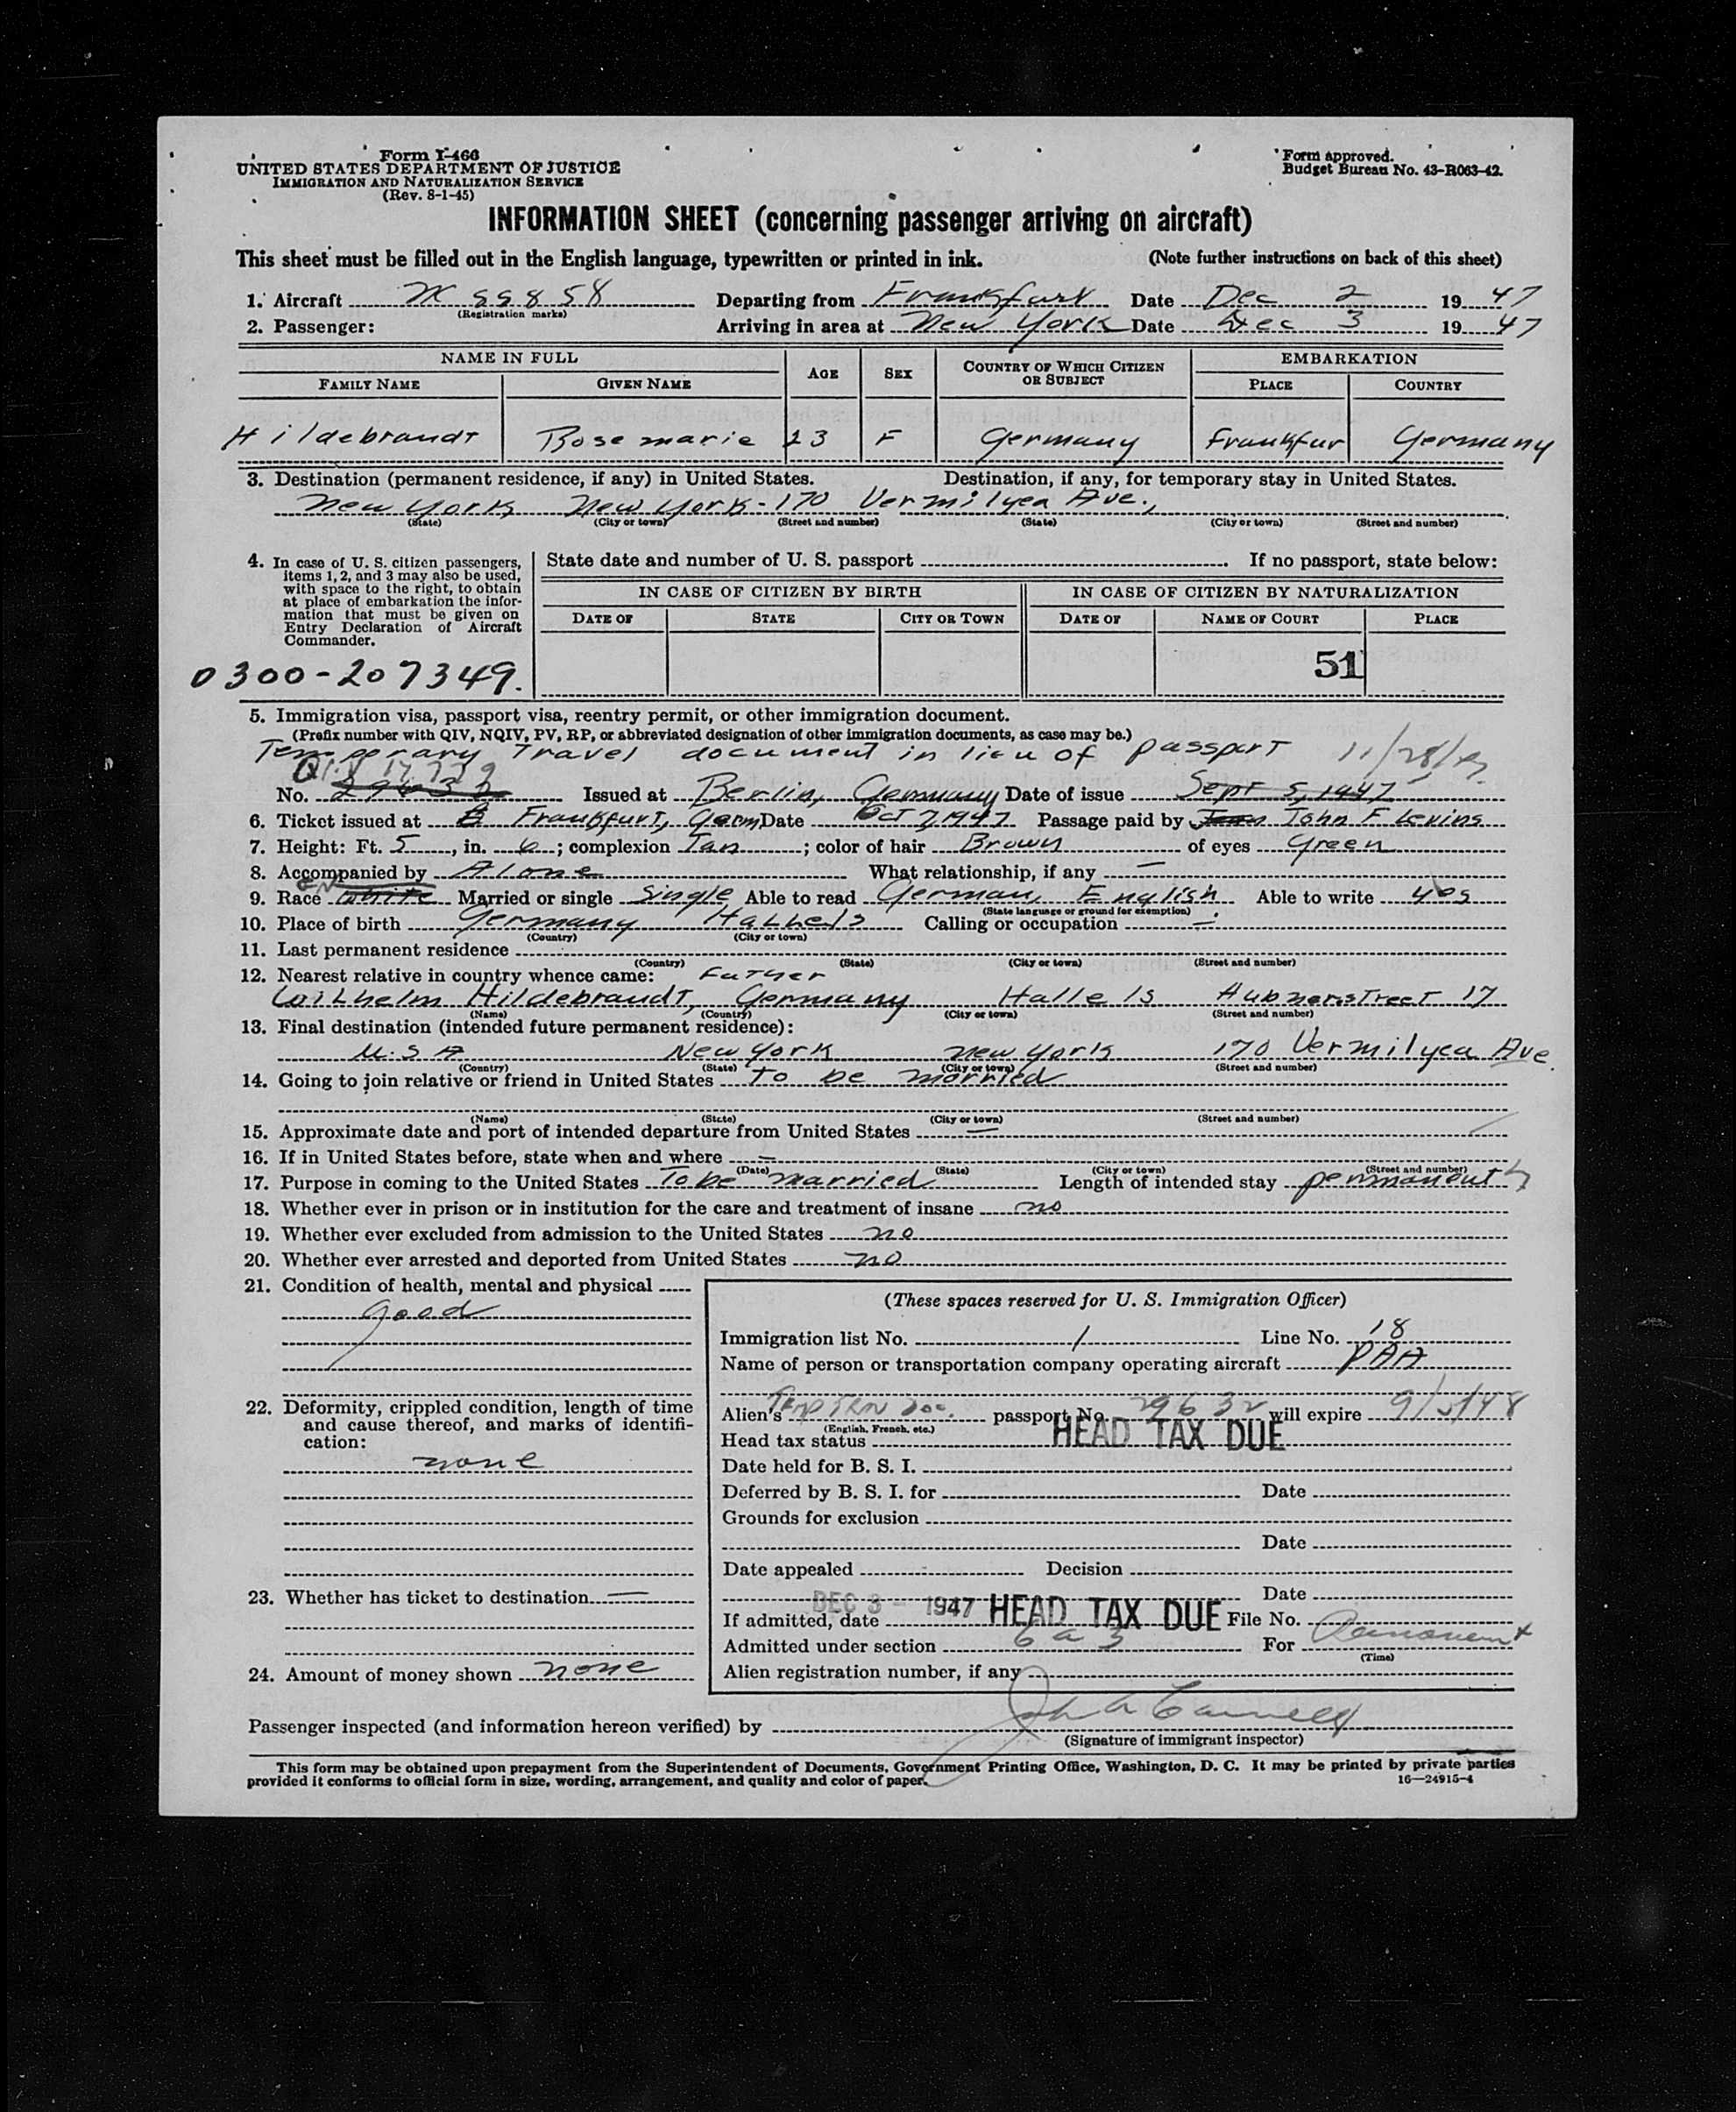 Form I-466
UNITED STATES DEPARTMENT OF JUSTICE
IMMIGRATION AND NATURALIZATION SERVICE
(Rev. 8-1-45)
Form approved.
Budget Bureau No. 43-R063-42.
INFORMATION SHEET (concerning passenger arriving on aircraft)
This sheet must be filled out in the English language, typewritten or printed in ink. (Note further instructions on back of this sheet)
1. Aircraft Departing from Frankfurt Date Dec 2 1947
(Registration marks)
2. Passenger: Arriving in area at New York Date Dec 3 1947
NAME IN FULL AGE SEX COUNTRY OF WHICH CITIZEN OR SUBJECT EMBARKATION
FAMILY NAME GIVEN NAME PLACE COUNTRY
Hildebrandt Rosemarie 23 F Germany Frankfur Germany
3. Destination (permanent residence, if any) in United States. Destination, if any, for temporary stay in United States.
New York New York - 170 Vermilyea Ave.,
(State) (City or town) (Street and number) (State) (City or town) (Street and number)
4. In case of U. S. citizen passengers, items 1, 2, and 3 may also be used, with space to the right, to obtain at place of embarkation the information that must be given on Entry Declaration of Aircraft Commander.
State date and number of U. S. passport If no passport, state below:
IN CASE OF CITIZEN BY BIRTH IN CASE OF CITIZEN BY NATURALIZATION
DATE OF STATE CITY OR TOWN DATE OF NAME OF COURT PLACE
51
0300-207349.
5. Immigration visa, passport visa, reentry permit, or other immigration document.
(Prefix number with QIV, NQIV, PV, RP, or abbreviated designation of other immigration documents, as case may be.)
Temporary Travel document in lieu of passport
No. 29632 Issued at Berlin, Germany Date of issue Sept 5, 1947
6. Ticket issued at Frankfurt, Germ Date Oct 7, 1947 Passage paid by John F Levins
7. Height: Ft. 5, in. 6; complexion Tan; color of hair Brown of eyes Green
8. Accompanied by Alone What relationship, if any —
9. Race White Married or single Single Able to read German, English Able to write yes
(State language or ground for exemption)
10. Place of birth Germany Calling or occupation —
(Country) (City or town)
11. Last permanent residence
(Country) (State) (City or town) (Street and number)
12. Nearest relative in country whence came: Father
Wilhelm Hildebrandt, Germany Halle
(Name) (Country) (City or town) (Street and number)
13. Final destination (intended future permanent residence):
U.S.A New York New York 170 Vermilyea Ave.
(Country) (State) (City or town) (Street and number)
14. Going to join relative or friend in United States To be married
(Name) (State) (City or town) (Street and number)
15. Approximate date and port of intended departure from United States —
16. If in United States before, state when and where —
(Date) (State) (City or town) (Street and number)
17. Purpose in coming to the United States To be married Length of intended stay
18. Whether ever in prison or in institution for the care and treatment of insane no
19. Whether ever excluded from admission to the United States no
20. Whether ever arrested and deported from United States no
21. Condition of health, mental and physical
good
22. Deformity, crippled condition, length of time and cause thereof, and marks of identification:
none
23. Whether has ticket to destination —
24. Amount of money shown none
(These spaces reserved for U. S. Immigration Officer)
Immigration list No. 1 Line No. 18
Name of person or transportation company operating aircraft PAA
Alien's passport No. 29632 will expire
(English, French, etc.)
Head tax status HEAD TAX DUE
Date held for B. S. I.
Deferred by B. S. I. for Date
Grounds for exclusion
Date
Date appealed Decision
Date
If admitted, date DEC 3 - 1947 HEAD TAX DUE File No.
Admitted under section 6 a 3 For
(Time)
Alien registration number, if any
Passenger inspected (and information hereon verified) by
(Signature of immigrant inspector)
This form may be obtained upon prepayment from the Superintendent of Documents, Government Printing Office, Washington, D. C. It may be printed by private parties
provided it conforms to official form in size, wording, arrangement, and quality and color of paper. 16—24915-4